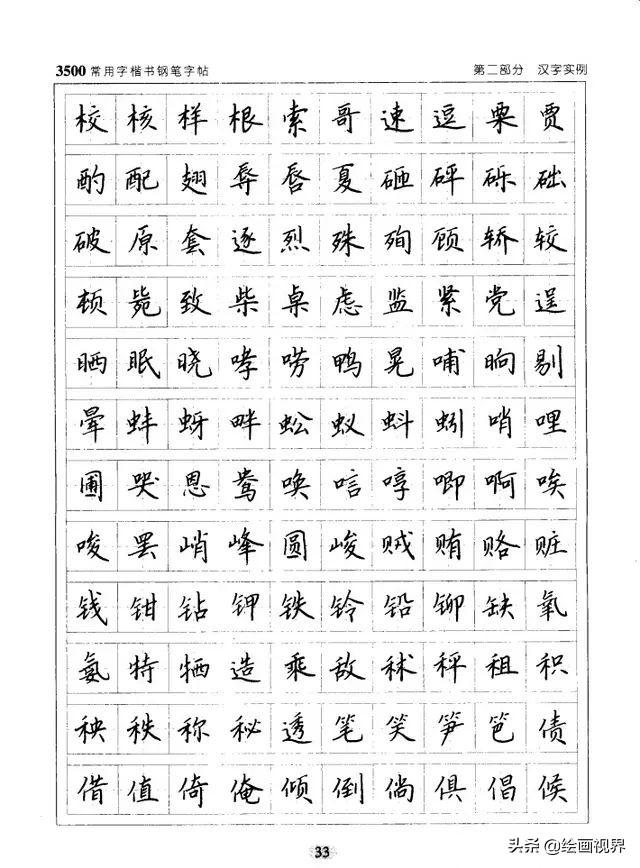 3500常用字楷书钢笔字帖 第二部分 汉字实例
校核样根索哥速逗栗贾
酌配翅辱唇夏砸砰砾础
破原套逐烈殊殉顾轿较
顿毙致柴桌虑监紧党逞
晒眠晓哮唠鸭晃哺晌剔
晕蚌蚜畔蚣蚁蚪蚓哨哩
圃哭恩鸯唤唁哼唧啊唉
唆罢峭峰圆峻贼贿赂赃
钱钳钻钾铁铃铅铆缺氧
氨特牺造乘敌秫秤租积
秧秩称秘透笔笑笋笆债
借值倚俺倾倒倘俱倡候
33
头条@绘画视界